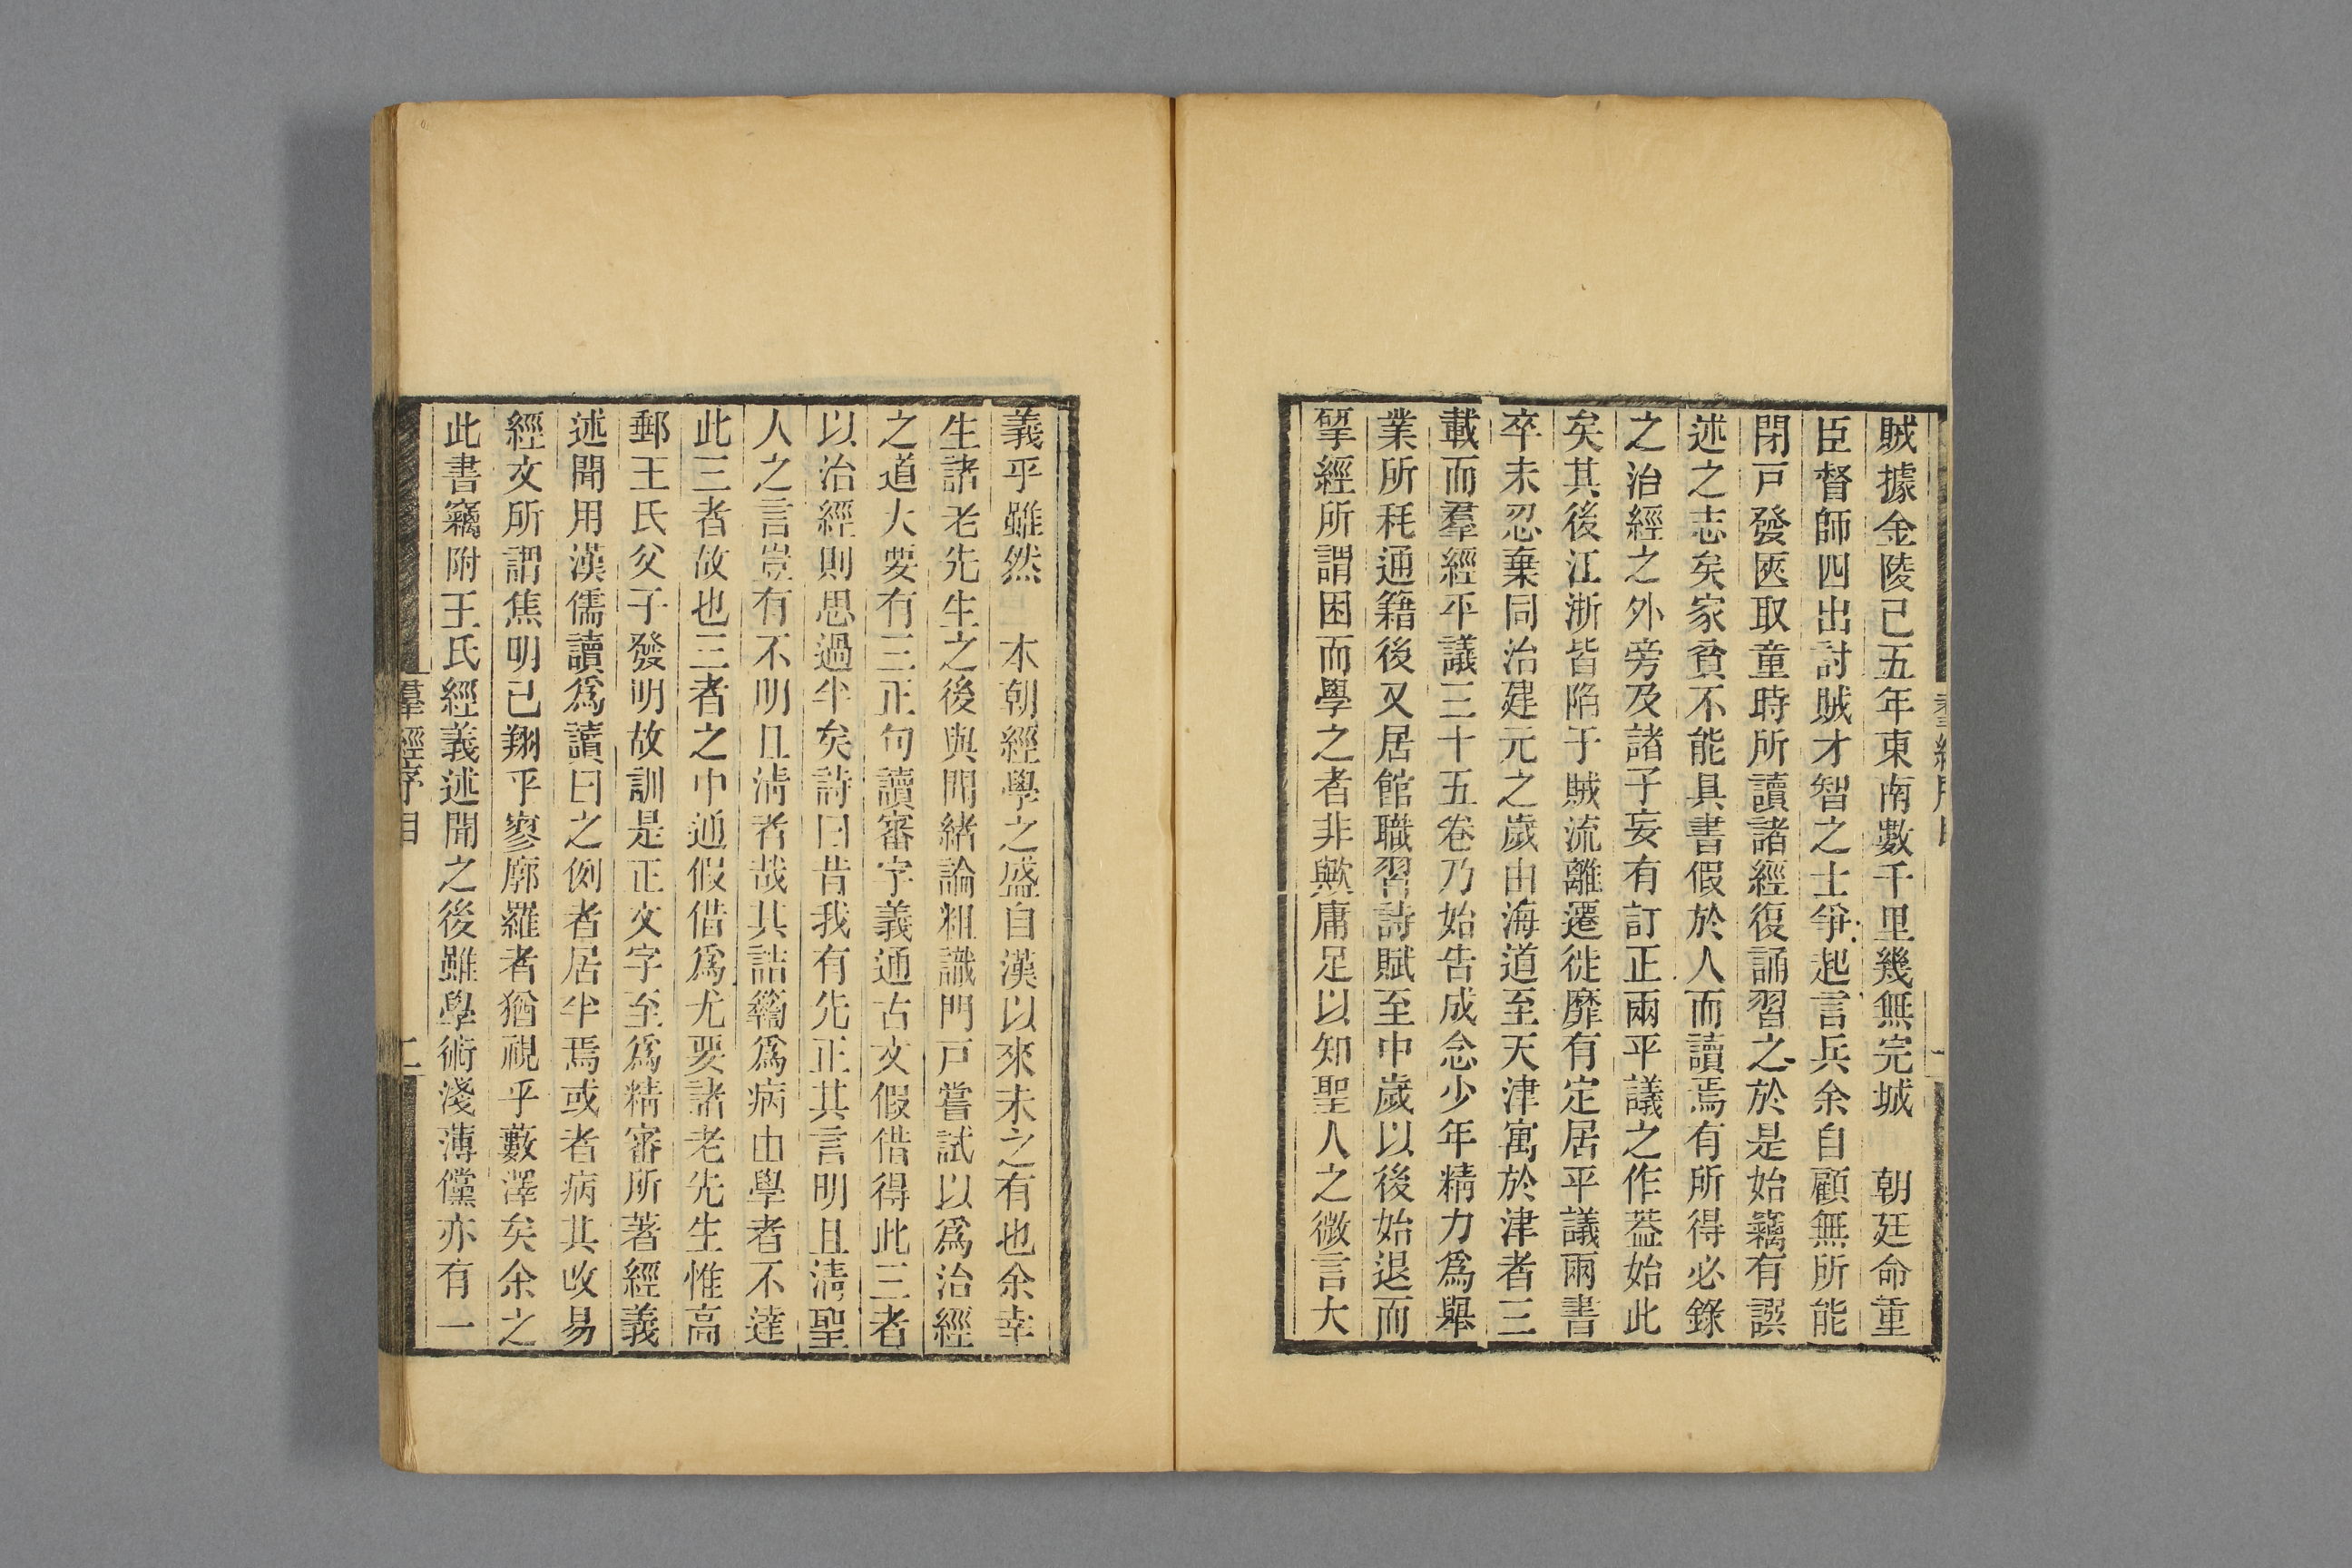 賊據金陵己五年東南數千里幾無完城　朝廷命重
臣督師四出討賊才智之士爭起言兵余自顧無所能
閉戸發匧取童時所讀諸經復誦習之於是始竊有譔
述之志矣家貧不能具書假於人而讀焉有所得必錄
之治經之外旁及諸子妄有訂正兩平議之作葢始此
矣其後江浙皆陷于賊流離遷徙靡有定居平議兩書
卒未忍棄同治建元之歲由海道至天津寓於津者三
載而羣經平議三十五卷乃始告成念少年精力爲舉
業所秏通籍後又居館職習詩賦至中歲以後始退而
孥經所謂困而學之者非歟庸足以知聖人之微言大
義乎雖然　本朝經學之盛自漢以來未之有也余幸
生諸老先生之後與聞緒論粗識門戸嘗試以爲治經
之道大要有三正句讀審字義通古文假借得此三者
以治經則思過半矣詩曰昔我有先正其言明且淸聖
人之言豈有不明且淸者哉其詰𥷚爲病由學者不達
此三者故也三者之中通假借爲尤要諸老先生惟高
郵王氏父子發明故訓是正文字至爲精審所著經義
述聞用漢儒讀爲讀曰之例者居半焉或者病其改易
經文所謂焦明己翔乎寥廓羅者猶視乎藪澤矣余之
此書竊附王氏經義述聞之後雖學術淺薄儻亦有一
羣經序目
二